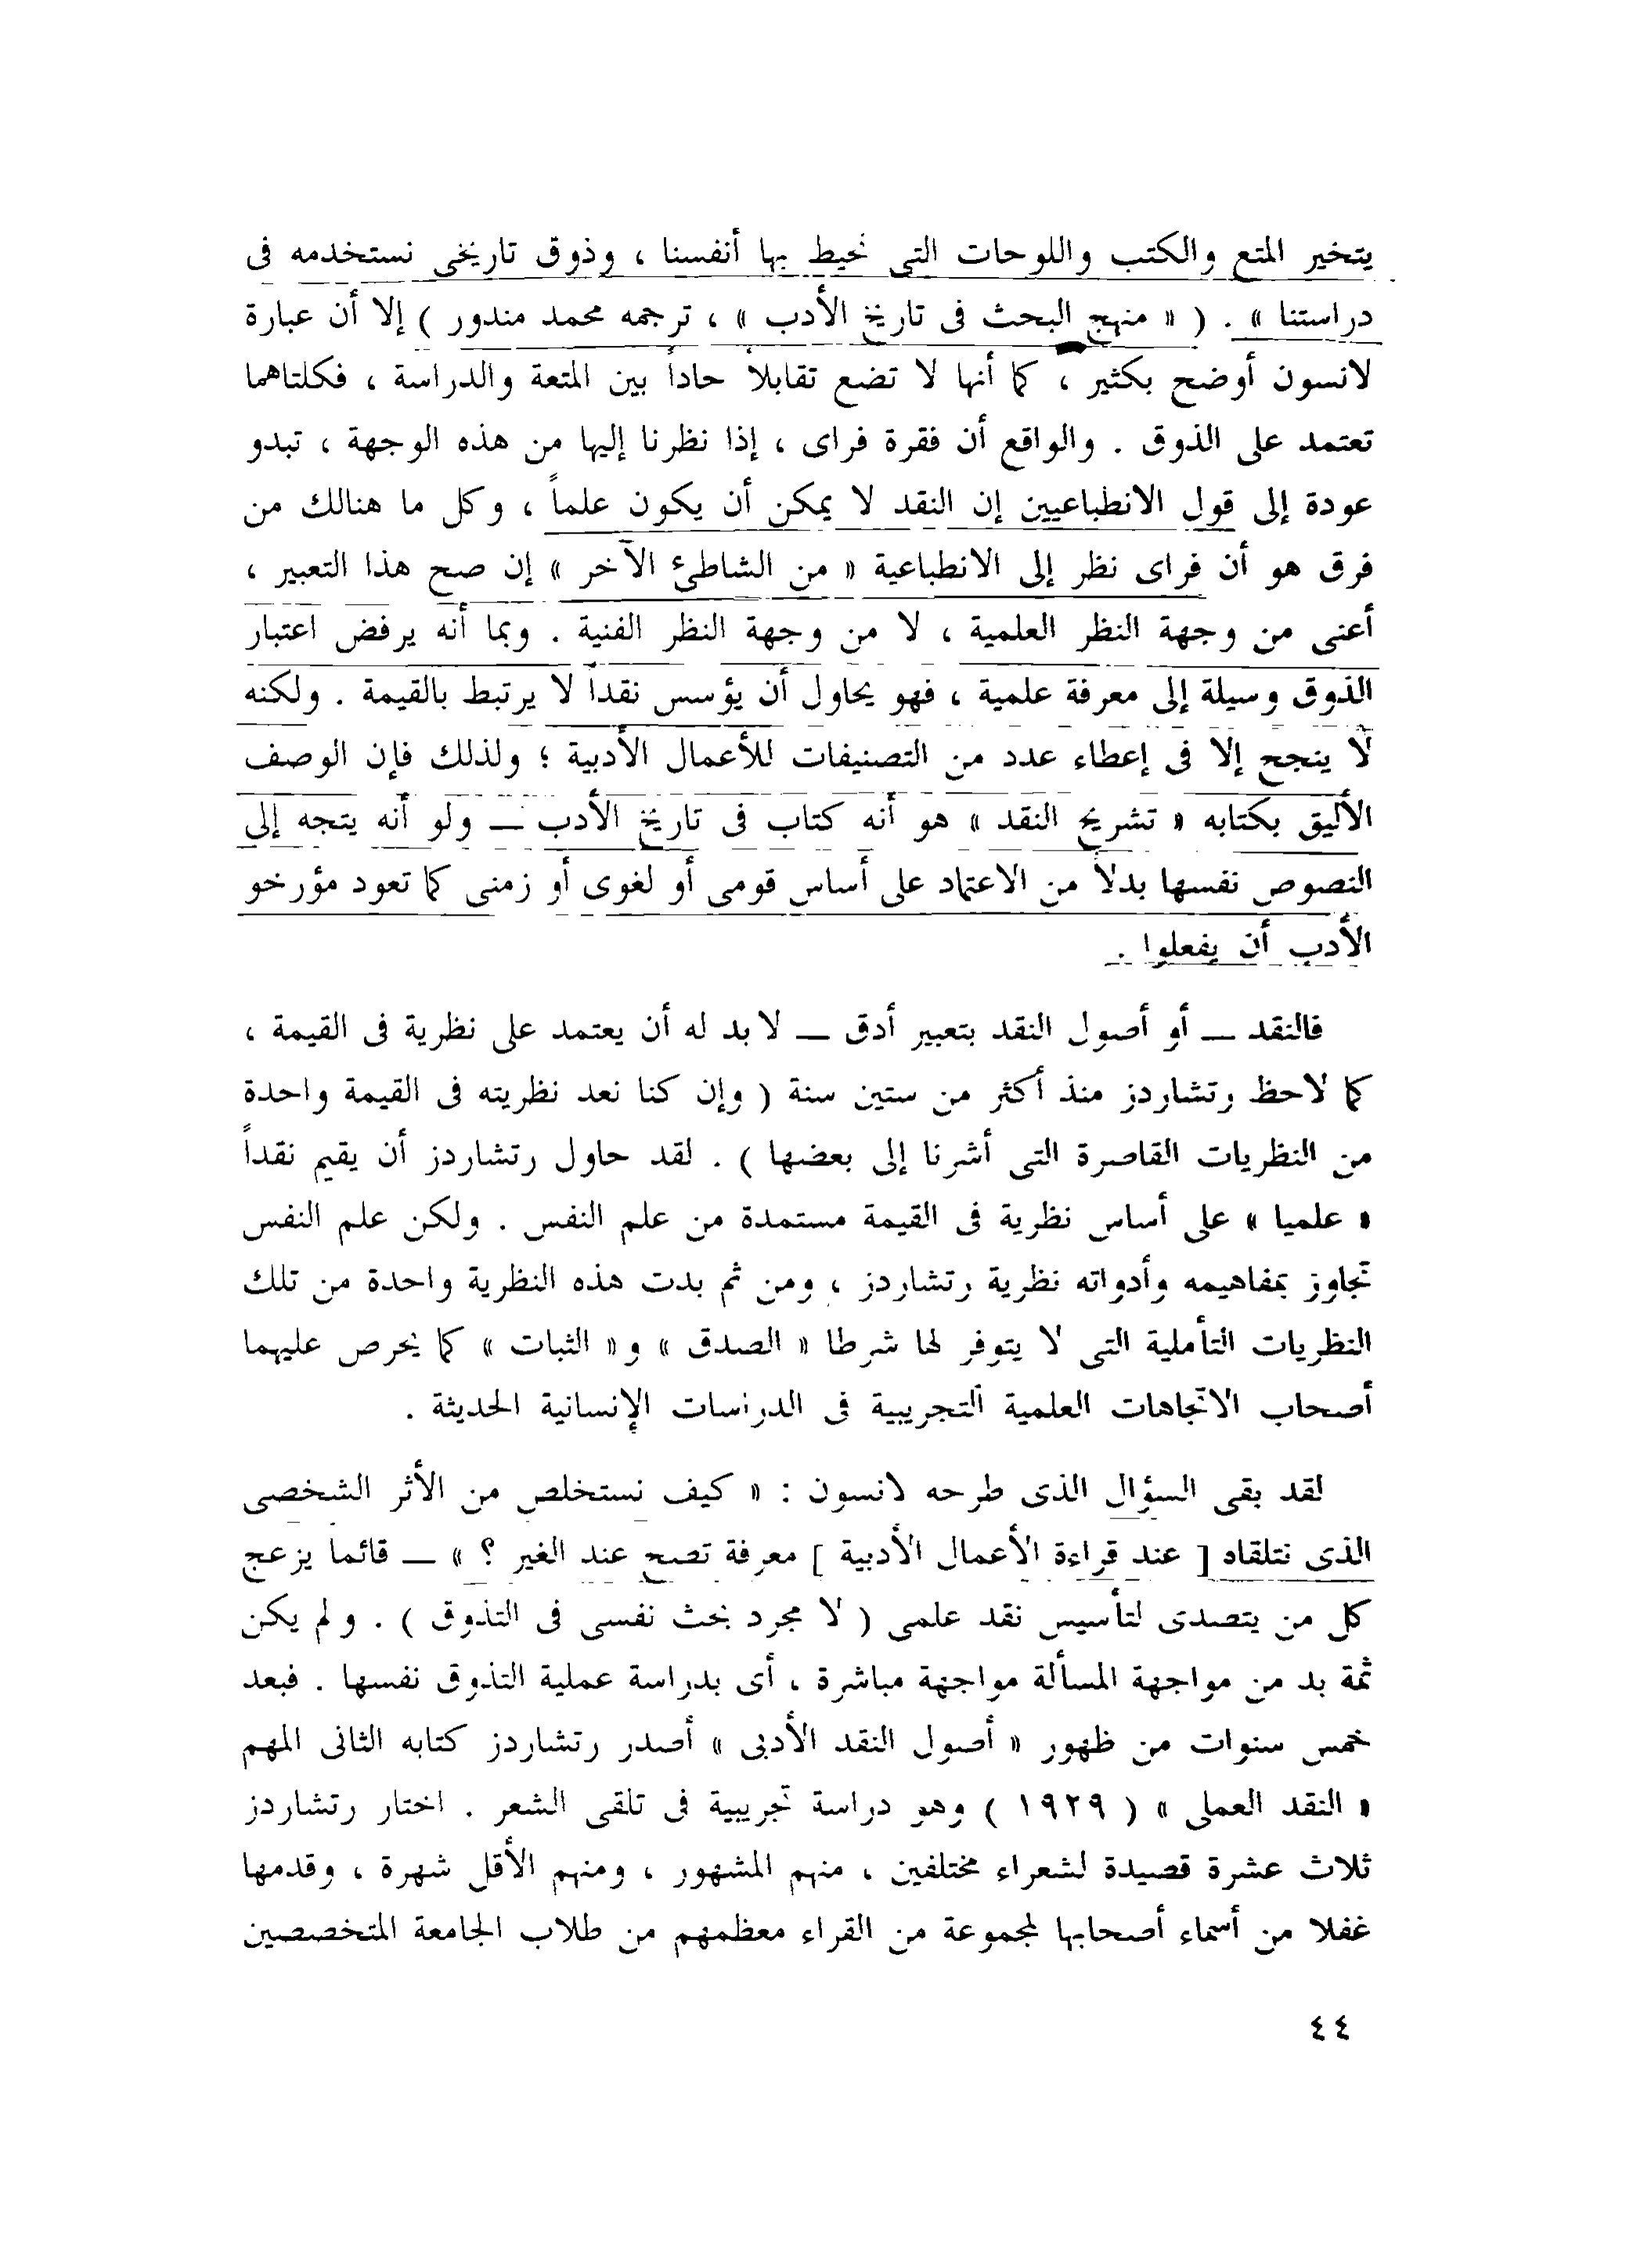 يتخير المتع والكتب واللوحات التى نحيط بها أنفسنا ، وذوق تاريخى نستخدمه فى
دراستنا » . ( « منهج البحث فى تاريخ الأدب » ، ترجمه محمد مندور ) إلا أن عبارة
لانسون أوضح بكثير ، كما أنها لا تضع تقابلاً حاداً بين المتعة والدراسة ، فكلتاهما
تعتمد على الذوق . والواقع أن فقرة فراى ، إذا نظرنا إليها من هذه الوجهة ، تبدو
عودة إلى قول الانطباعيين إن النقد لا يمكن أن يكون علماً ، وكل ما هنالك من
فرق هو أن فراى نظر إلى الانطباعية « من الشاطئ الآخر » إن صح هذا التعبير ،
أعنى من وجهة النظر العلمية ، لا من وجهة النظر الفنية . وبما أنه يرفض اعتبار
الذوق وسيلة إلى معرفة علمية ، فهو يحاول أن يؤسس نقداً لا يرتبط بالقيمة . ولكنه
لا ينجح إلا فى إعطاء عدد من التصنيفات للأعمال الأدبية ؛ ولذلك فإن الوصف
الأليق بكتابه « تشريح النقد » هو أنه كتاب فى تاريخ الأدب — ولو أنه يتجه إلى
النصوص نفسها بدلاً من الاعتماد على أساس قومى أو لغوى أو زمنى كما تعود مؤرخو
الأدب أن يفعلوا .
فالنقد — أو أصول النقد بتعبير أدق — لابد له أن يعتمد على نظرية فى القيمة ،
كما لاحظ رتشاردز منذ أكثر من ستين سنة ( وإن كنا نعد نظريته فى القيمة واحدة
من النظريات القاصرة التى أشرنا إلى بعضها ) . لقد حاول رتشاردز أن يقيم نقداً
« علميا » على أساس نظرية فى القيمة مستمدة من علم النفس . ولكن علم النفس
تجاوز بمفاهيمه وأدواته نظرية رتشاردز ، ومن ثم بدت هذه النظرية واحدة من تلك
النظريات التأملية التى لا يتوفر لها شرطا « الصدق » و« الثبات » كما يحرص عليهما
أصحاب الاتجاهات العلمية التجريبية فى الدراسات الإنسانية الحديثة .
لقد بقى السؤال الذى طرحه لانسون : « كيف نستخلص من الأثر الشخصى
الذى نتلقاه [ عند قراءة الأعمال الأدبية ] معرفة تصح عند الغير ؟ » — قائما يزعج
كل من يتصدى لتأسيس نقد علمى ( لا مجرد بحث نفسى فى التذوق ) . ولم يكن
ثمة بد من مواجهة المسألة مواجهة مباشرة ، أى بدراسة عملية التذوق نفسها . فبعد
خمس سنوات من ظهور « أصول النقد الأدبى » أصدر رتشاردز كتابه الثانى المهم
« النقد العملى » ( ١٩٢٩ ) وهو دراسة تجريبية فى تلقى الشعر . اختار رتشاردز
ثلاث عشرة قصيدة لشعراء مختلفين ، منهم المشهور ، ومنهم الأقل شهرة ، وقدمها
غفلا من أسماء أصحابها لمجموعة من القراء معظمهم من طلاب الجامعة المتخصصين
٤٤